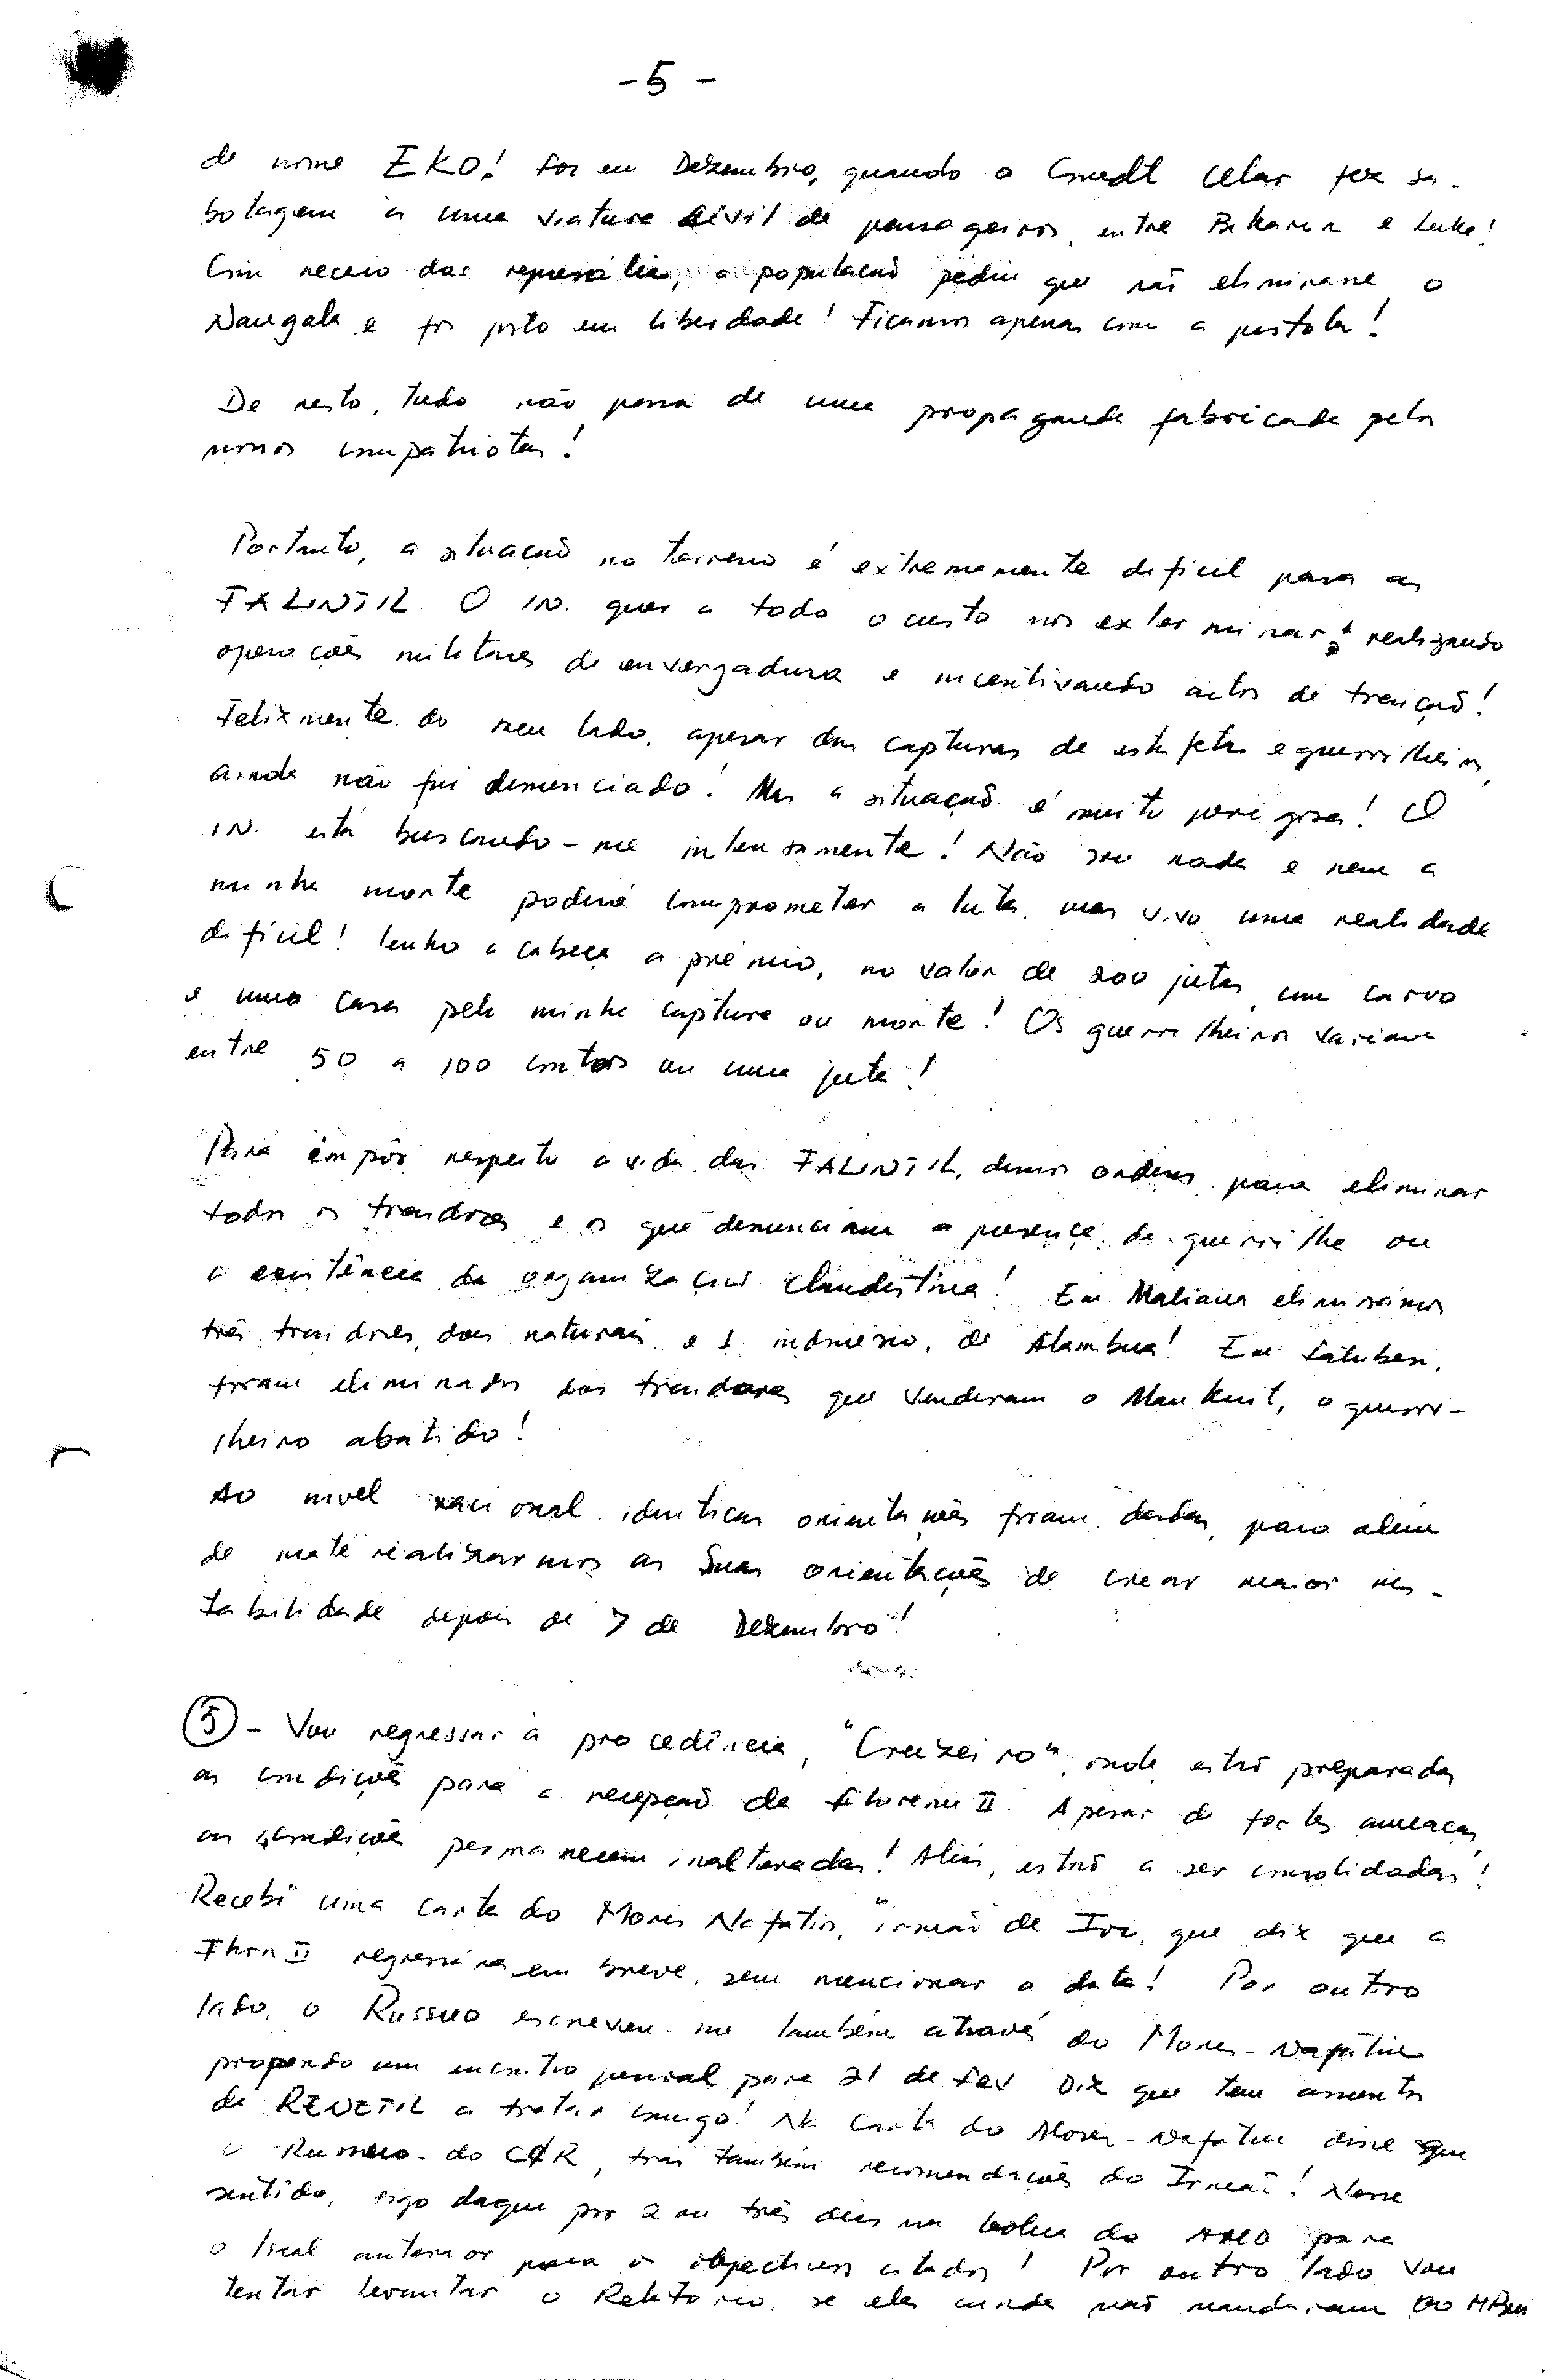 - 5 -
de nome EKO! Foi em Dezembro, quando o Cmdt fez sa-
botagem à uma viatura civil de passageiros, entre e
Com receio das represália, a população pediu que não eliminasse o
Naugala e foi posto em liberdade! Ficamos apenas com a pistola!
De resto, tudo não passa de uma propaganda fabricada pelos
nossos compatriotas!
Portanto, a situação no terreno é extremamente difícil para as
FALINTIL. O IN. quer a todo o custo nos exterminar, realizando
operações militares de envergadura e incentivando actos de traição!
Felizmente, do meu lado, apesar das capturas de estafetas e guerrilheiros,
ainda não fui denunciado! Mas a situação é muito perigosa! O
IN. está buscando-me intensamente! Não sou nada e nem a
minha morte poderá comprometer a luta, mas vivo uma realidade
difícil! Tenho a cabeça a prémio, no valor de 200 jutas, um carro
e uma casa pela minha captura ou morte! Os guerrilheiros variam
entre 50 a 100 contos ou uma juta!
Para impôr respeito à vida das FALINTIL, demos ordens para eliminar
todos os traidores e os que denunciam a presença da guerrilha ou
a existência da organização clandestina! Em Maliana eliminámos
três traidores, dois naturais e 1 indonésio, de Atambua! Em
foram eliminados dois traidores que venderam o, o guerri-
lheiro abatido!
Ao nível nacional, idênticas orientações foram dadas, para além
de materializarmos as Suas orientações de crear maior ins-
tabilidade depois de 7 de Dezembro!
5 - Vou regressar à procedência, "Cruzeiro", onde estão preparadas
as condições para a recepção de II. Apesar de fortes ameaças,
as condições permanecem inalteradas! Aliás, estão a ser consolidadas!
Recebi uma carta do irmão de que diz que a
II regressará em breve, sem mencionar a data! Por outro
lado, o escreveu-me também através do
propondo um encontro pessoal para 21 de Fev. Diz que tem assuntos
da RENETIL a tratar comigo! Na carta do disse que
o do, traz também recomendações do Irmão! Nesse
sentido, sigo daqui por 2 ou três dias na do para
o local anterior para os objectivos citados! Por outro lado vou
tentar levantar o Relatório, se eles ainda não mandaram